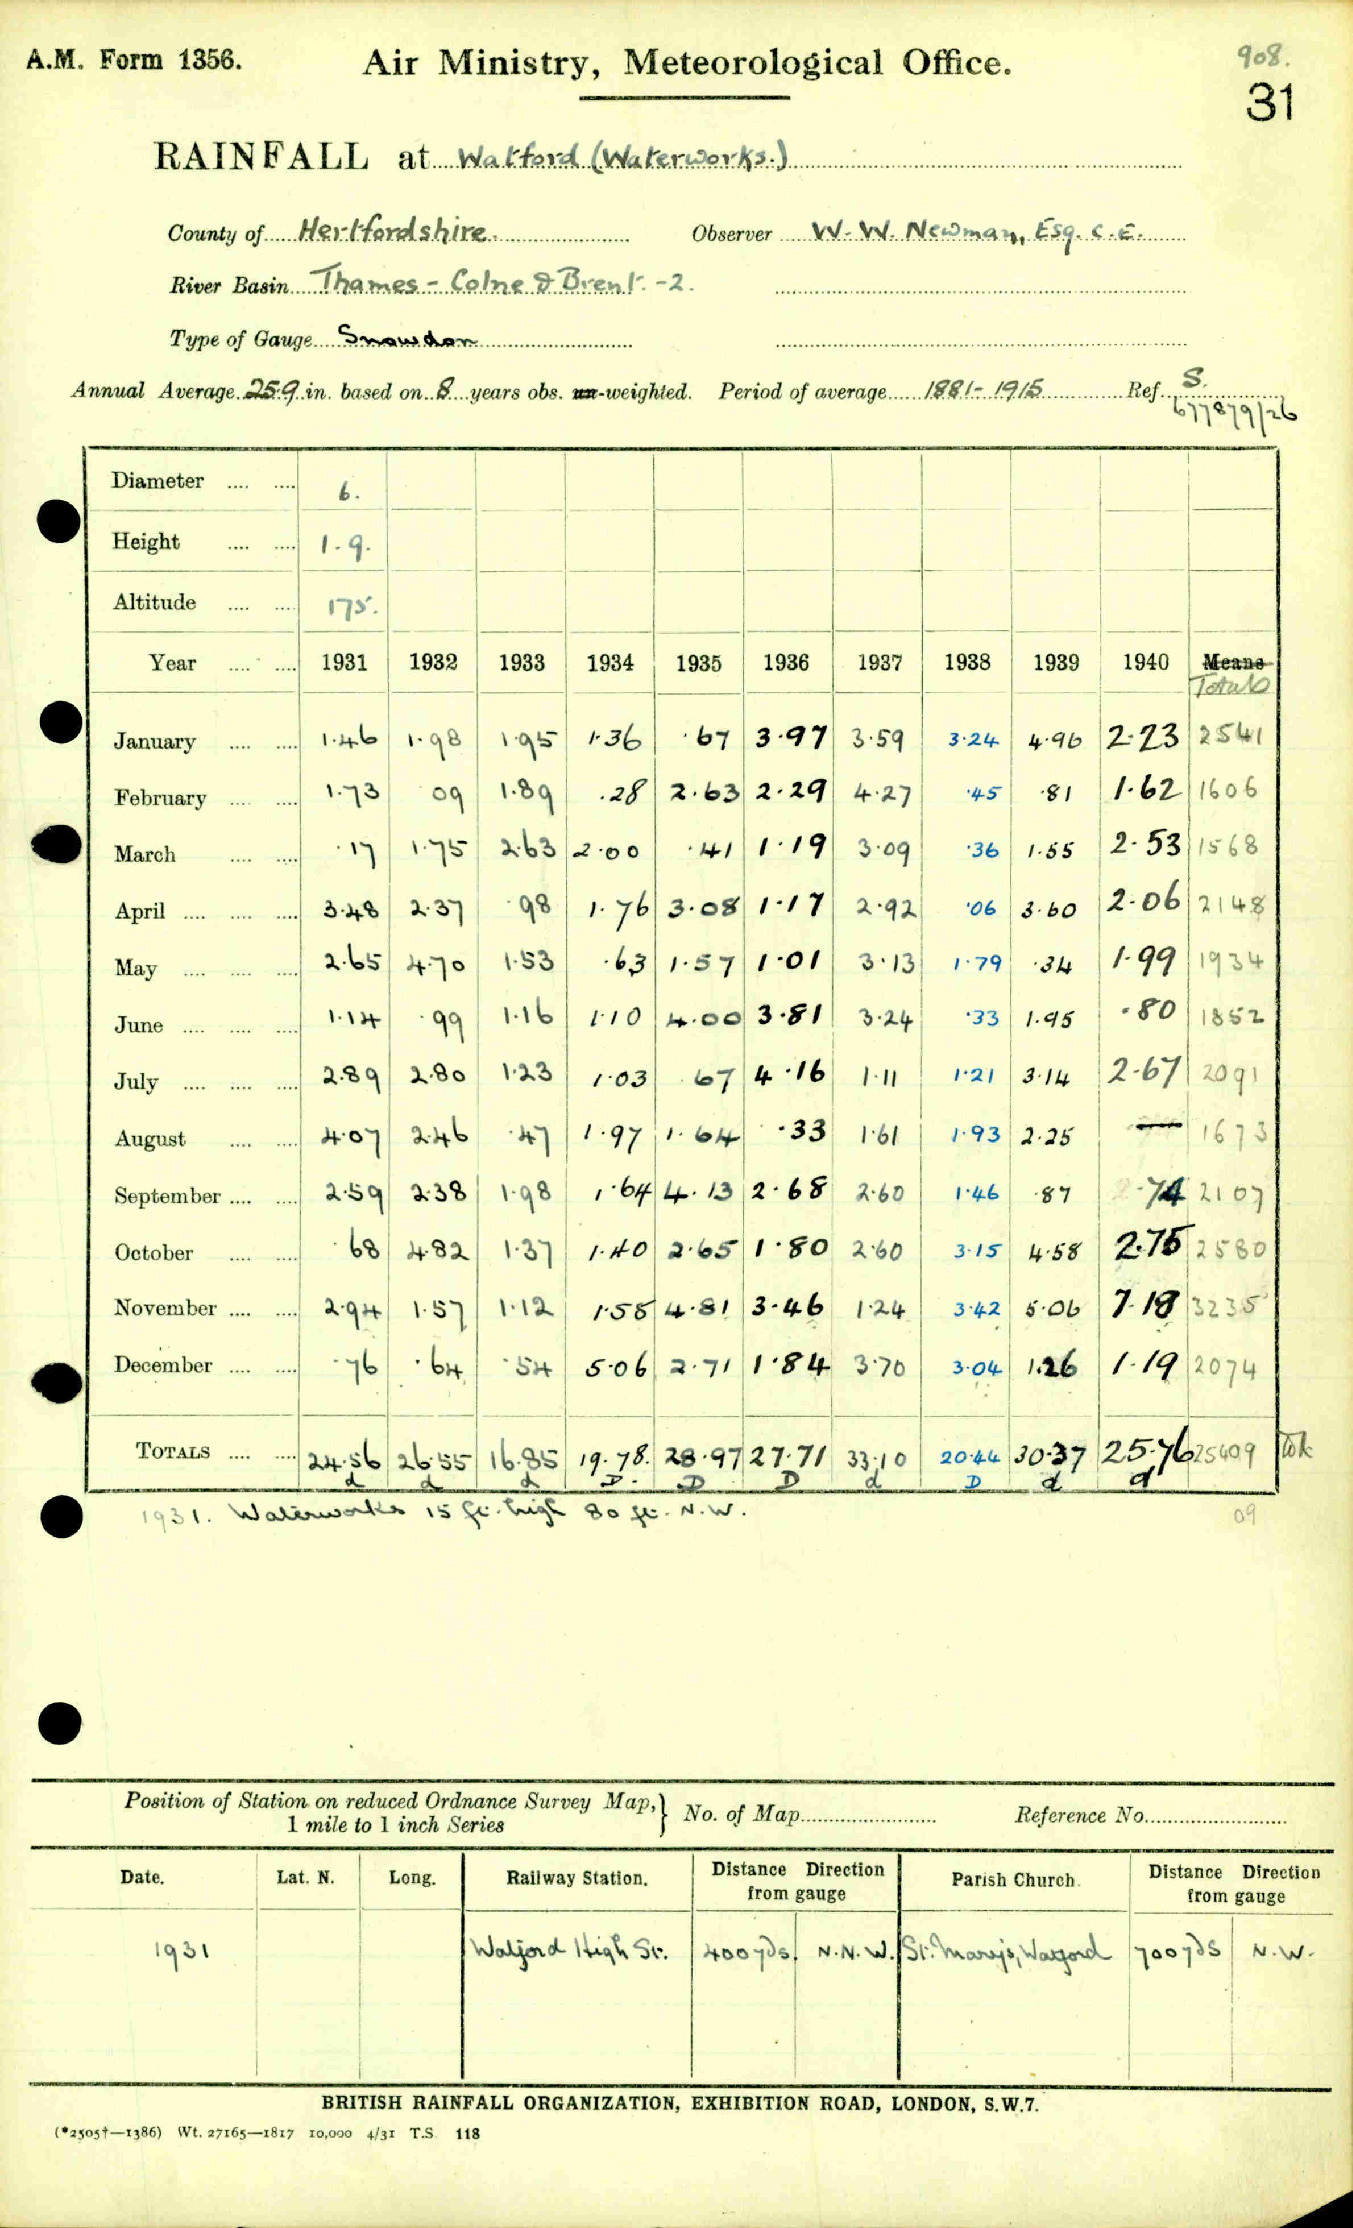 A.M. Form 1356.
Air Ministry, Meteorological Office.
908.
31
RAINFALL at Watford (Waterworks.)
County of Hertfordshire. Observer W. W. Newman, Esq. C.E.
River Basin Thames - Colne & Brent. -2.
Type of Gauge Snowdon
Annual Average 25.9 in. based on 8 years obs. un-weighted. Period of average 1881-1915 Ref. S.
677879/26
Diameter .... .... 6.
Height .... .... 1.9.
Altitude .... .... 175.
Year .... .... 1931 1932 1933 1934 1935 1936 1937 1938 1939 1940 Means
Totals
January .... .... 1.46 1.98 1.95 1.36 .67 3.97 3.59 3.24 4.96 2.23 2541
February .... .... 1.73 09 1.89 .28 2.63 2.29 4.27 .45 .81 1.62 1606
March .... .... .17 1.75 2.63 2.00 .41 1.19 3.09 .36 1.55 2.53 1568
April .... .... .... 3.48 2.37 .98 1.76 3.08 1.17 2.92 .06 3.60 2.06 2148
May .... .... .... 2.65 4.70 1.53 .63 1.57 1.01 3.13 1.79 .34 1.99 1934
June .... .... .... 1.14 .99 1.16 1.10 4.00 3.81 3.24 .33 1.95 .80 1852
July .... .... .... 2.89 2.80 1.23 1.03 .67 4.16 1.11 1.21 3.14 2.67 2091
August .... .... 4.07 2.46 .47 1.97 1.64 .33 1.61 1.93 2.25 — 1673
September .... .... 2.59 2.38 1.98 1.64 4.13 2.68 2.60 1.46 .87 .74 2107
October .... .... .68 4.82 1.37 1.40 2.65 1.80 2.60 3.15 4.58 2.75 2580
November .... .... 2.94 1.57 1.12 1.58 4.81 3.46 1.24 3.42 5.06 7.18 3235
December .... .... .76 .64 .54 5.06 2.71 1.84 3.70 3.04 1.26 1.19 2074
TOTALS .... .... 24.56 26.55 16.85 19.78. 28.97 27.71 33.10 20.44 30.37 25.76 25409
d d d D. D D d D d d
1931. Waterworks 15 ft. high 80 ft. N.W. 09
Position of Station on reduced Ordnance Survey Map, } No. of Map Reference No.
1 mile to 1 inch Series
Date. Lat. N. Long. Railway Station. Distance Direction from gauge Parish Church. Distance Direction from gauge
1931 Watford High St. 400 yds. N.N.W. St. Mary's, Watford 700 yds N.W.
BRITISH RAINFALL ORGANIZATION, EXHIBITION ROAD, LONDON, S.W.7.
(*2505†—1386) Wt. 27165—1817 10,000 4/31 T.S. 118